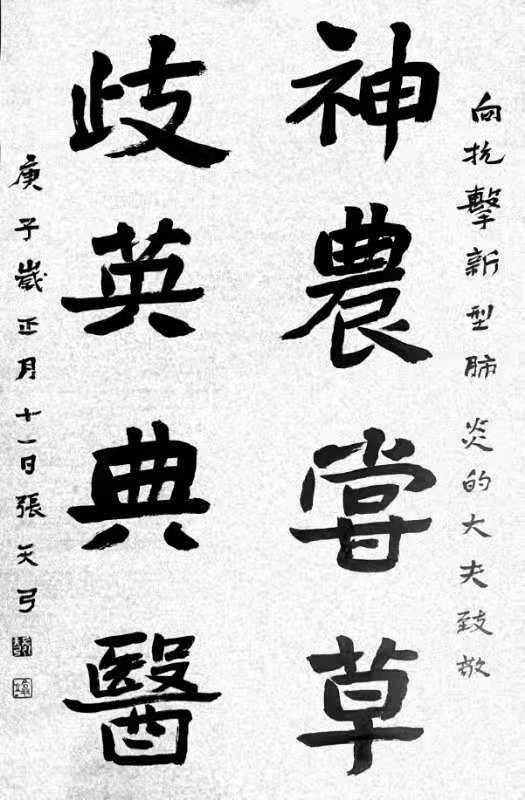 向抗擊新型肺炎的大夫致敬
神農嘗草
歧英典醫
庚子歲正月十一日張天弓